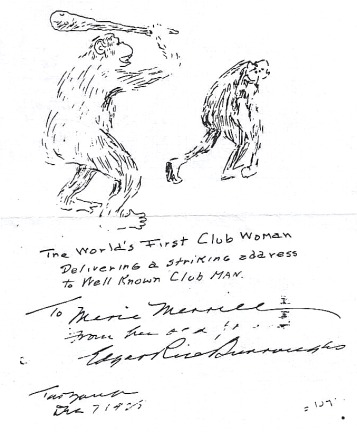 The World's First Club Woman
Delivering a striking address
to Well Known Club MAN.
To Marie Merrill
from her old
Edgar Rice Burroughs
Tarzana
Dec 7